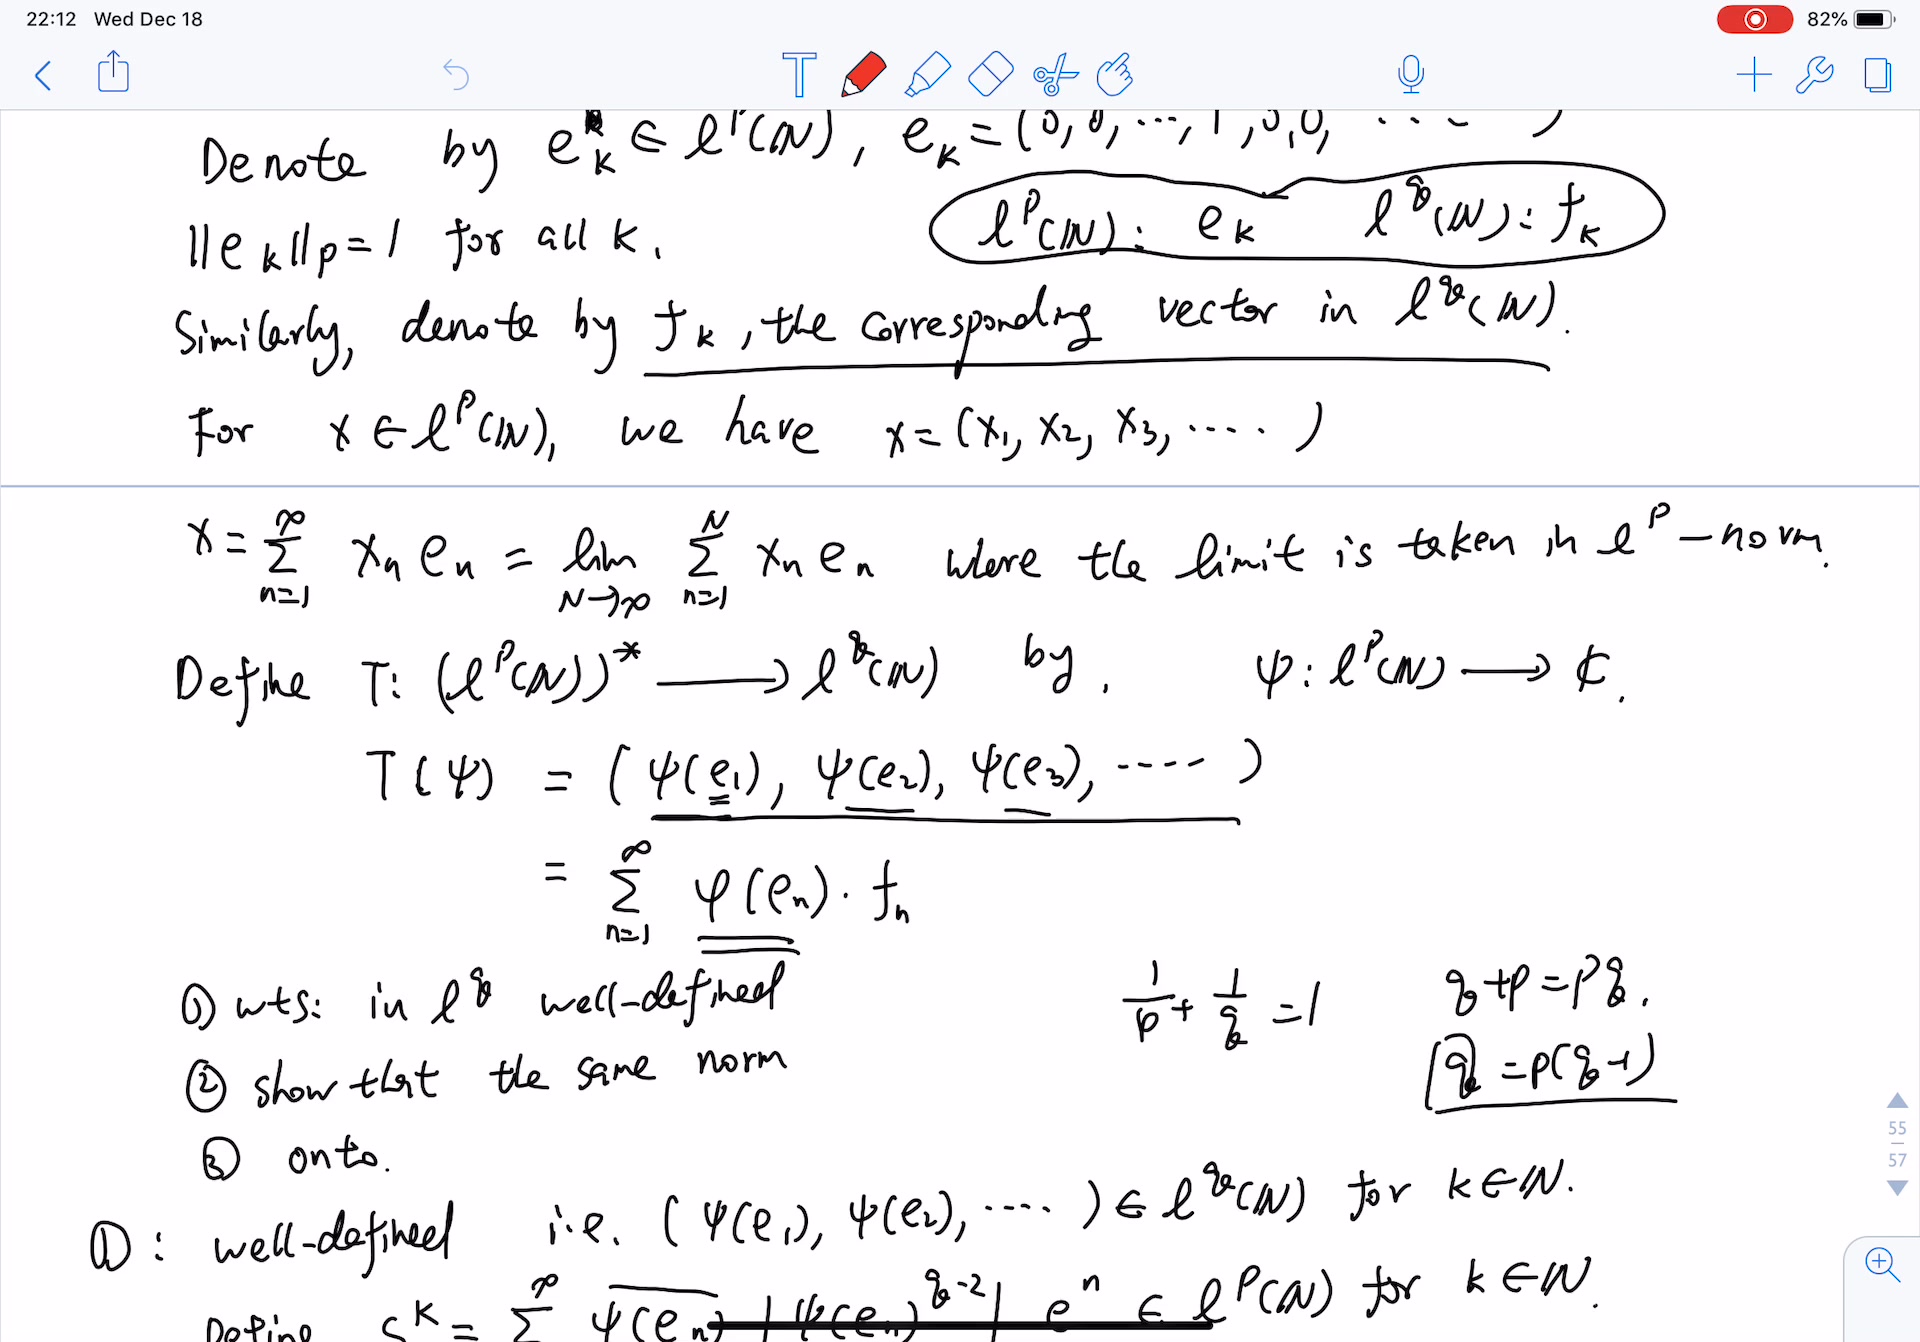 22:12 Wed Dec 18 82%
Denote by e_k ∈ l^p(ℕ), e_k = (0, 0, ..., 1, 0, 0, ....)
||e_k||_p = 1 for all k.
l^p(ℕ): e_k l^q(ℕ): f_k
Similarly, denote by f_k, the corresponding vector in l^q(ℕ).
For x ∈ l^p(ℕ), we have x = (x_1, x_2, x_3, .....)
x = ∑_{n=1}^∞ x_n e_n = lim_{N→∞} ∑_{n=1}^N x_n e_n where the limit is taken in l^p-norm.
Define T: (l^p(ℕ))^* ⟶ l^q(ℕ) by, ψ: l^p(ℕ) ⟶ ℂ.
T(ψ) = (ψ(e_1), ψ(e_2), ψ(e_3), .....)
= ∑_{n=1}^∞ φ(e_n) · f_n
① wts: in l^q well-defined
1/p + 1/q = 1 q+p = pq.
② show that the same norm
q = p(q-1)
③ onto.
55
57
①: well-defined i.e. (ψ(e_1), ψ(e_2), ....) ∈ l^q(ℕ) for k ∈ ℕ.
Define S^k = ∑^∞ \overline{ψ(e_n)} |ψ(e_n)^{q-2}| e^n ∈ l^p(ℕ) for k ∈ ℕ.